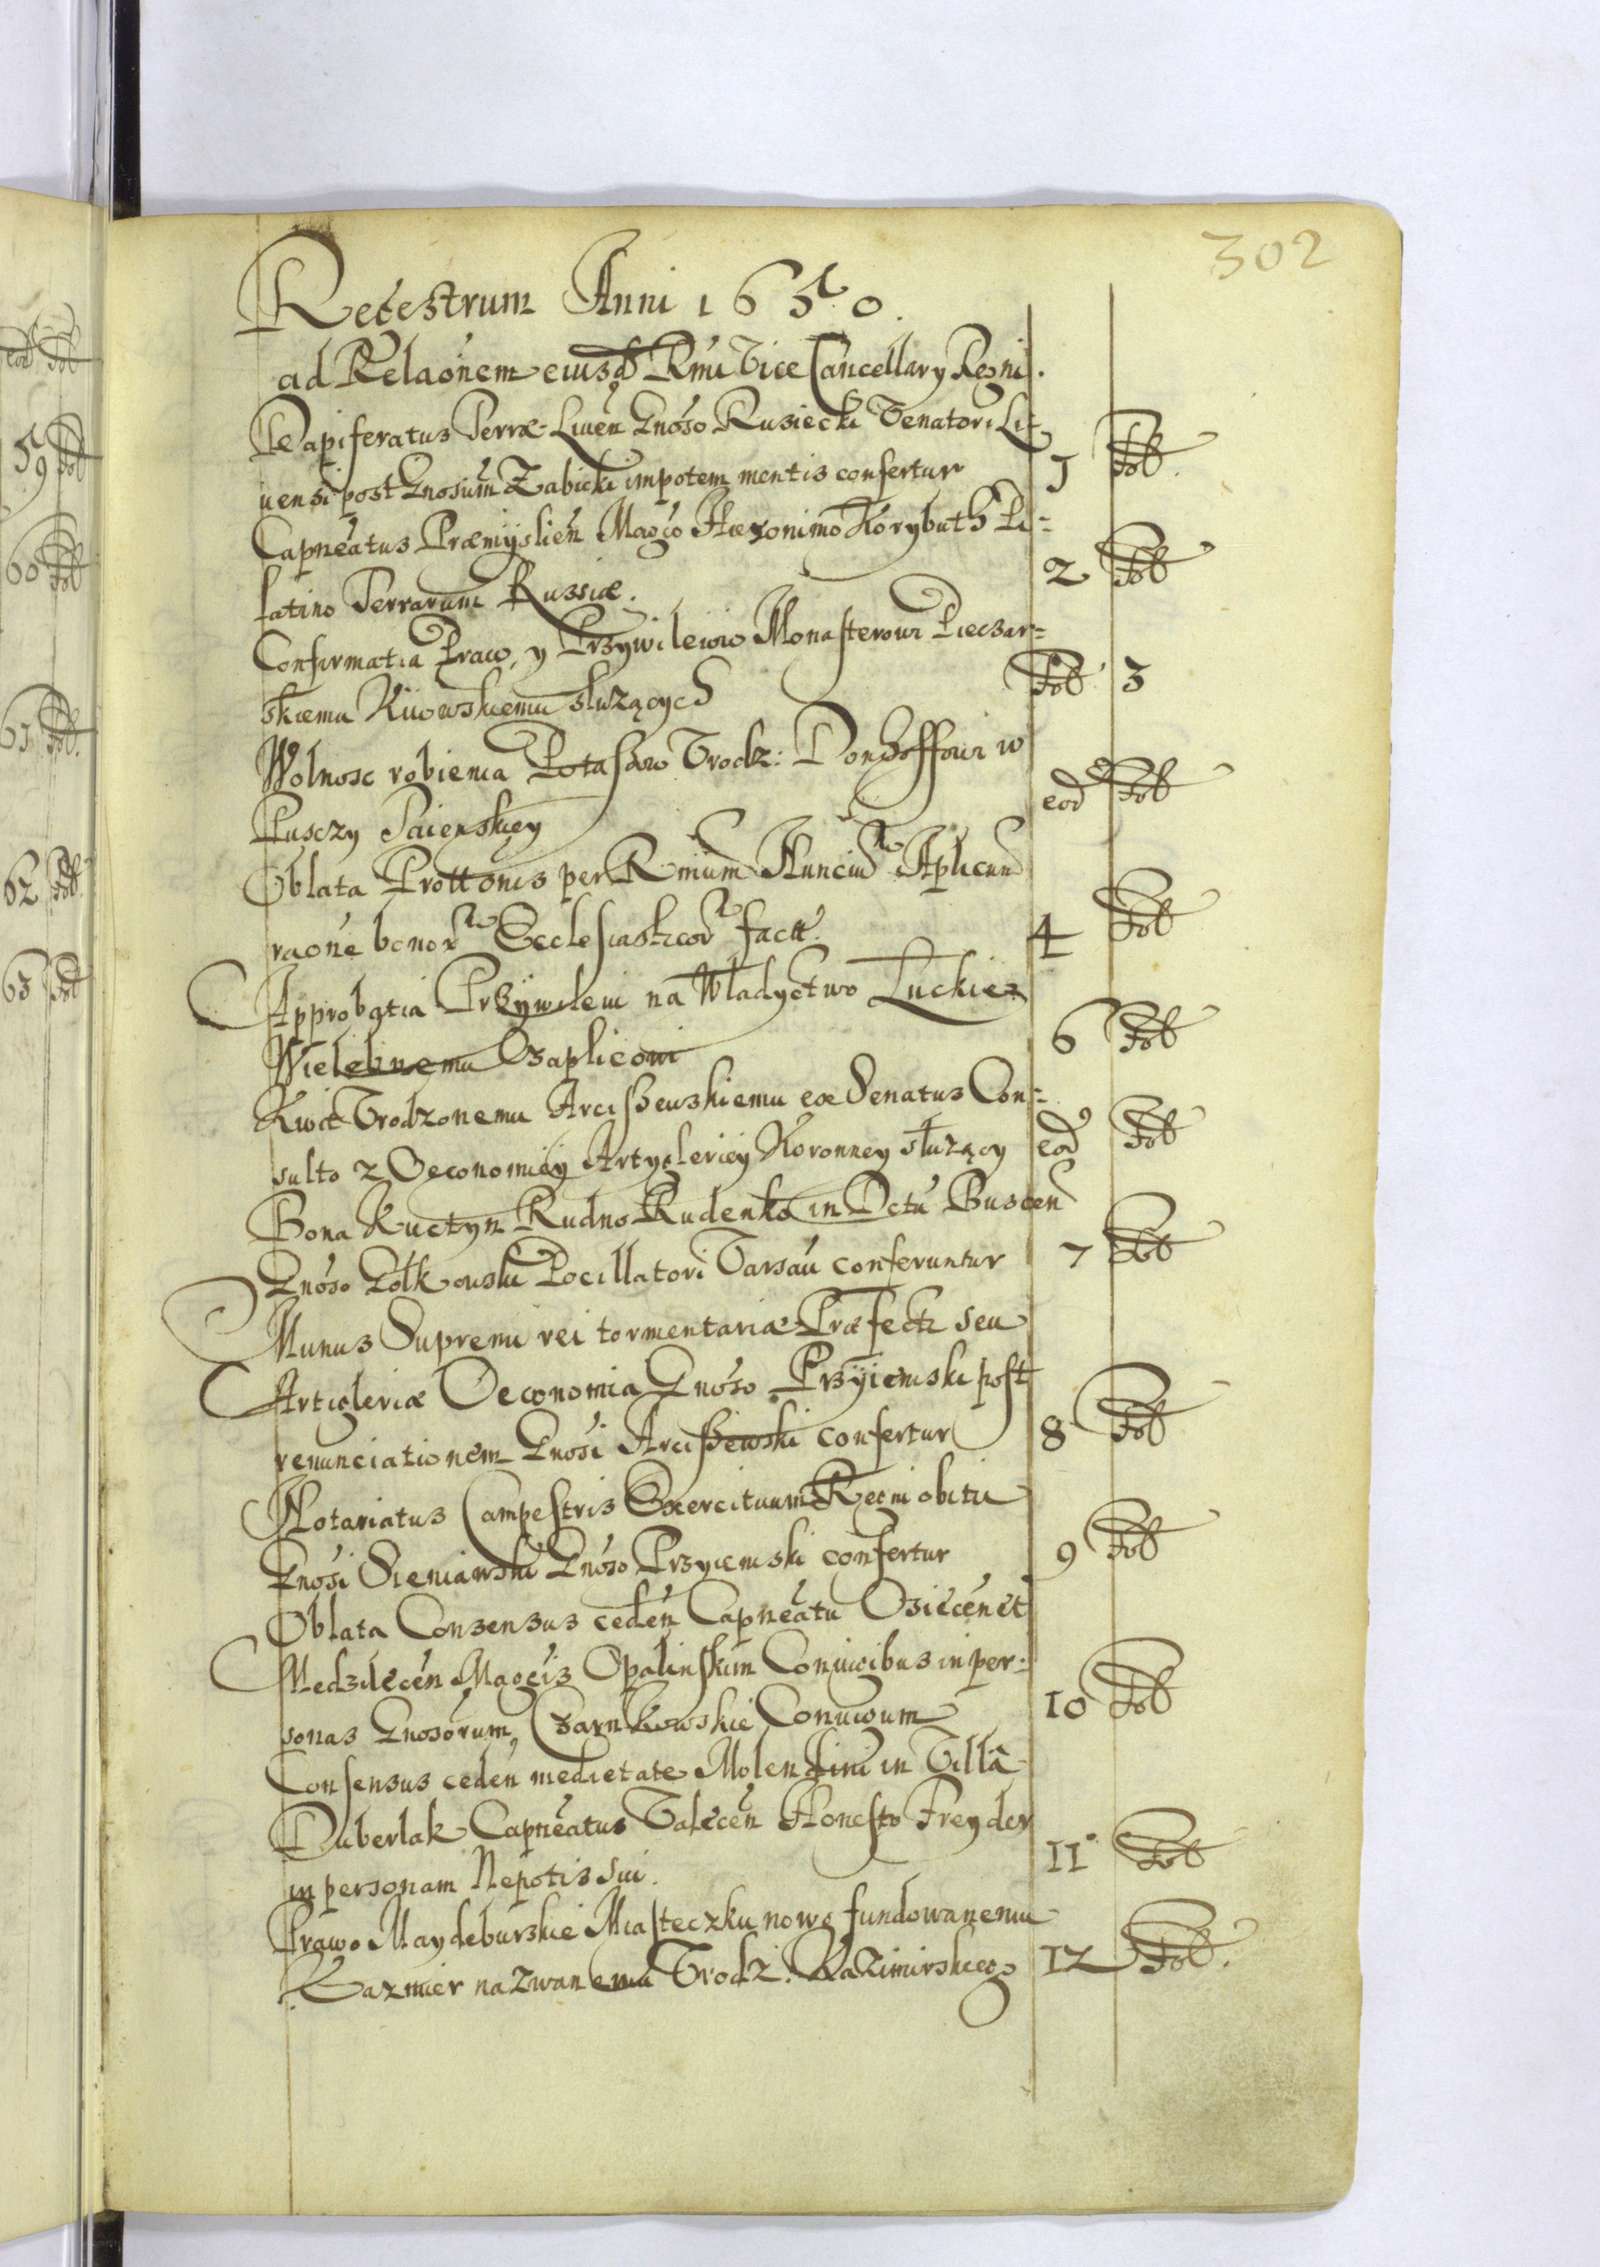 302
Regestrum Anni 1650.
ad Relaönem eiusd Rmi Vice Cancellary Regni.
Dapiferatus Terræ Liuen Gnöso Rusiecki Venatori Li-
uensi post Gnosum Zabicki impotem mentis confertur 1 Fol.
Capneatus Præmyslien Magco Hieronimo Korybuth Pa-
latino Terrarum Russiæ. 2 Fol
Confirmatia Praw, y Przywilejow Monasterowi Pieczar-
skiemu Kiiowskiemu służących Fol 3
Wolnosc robienia Potaszow Vrodz: Donhoffowi w
Pusczy eod Fol
Oblata Prottonis per Rmum Nunciu Aplicum
raone bonor Ecclesiasticor factt. 4 Fol
Approbatia Przywileiu na Władyctwo Łuckie
Wielebnemu Czaplicowi 6 Fol
Kwit Vrodzonemu Arciszewskiemu ex Senatus Con-
sulto z Oeconomiey Artyleriey Koronney służący eod Fol
Bona Kuctyn Rudno Rudenko in Dctu Buscen
Gnoso Pocillatori Varsau conferuntur 7 Fol
Munus Supremi rei tormentariæ Præfecti seu
Artigleriæ Oeconomia Gnoso Przyiemski post
renunciationem Gnosi Arciszewski confertur 8 Fol
Notariatus Campestris Exercituum Regni obitu
Gnosi Sieniawski Gnoso Przyiemski confertur 9 Fol
Oblata Consensus ceden Capneatu Osiecen et
Medzilecen Magcis Opalinskim Coniugibus in per-
sonas Gnosorum Czarnkowskie Coniugum 10 Fol
Consensus ceden medietate Molendini in Villâ
Duberlak Capneatus Valecen Honesto Freyder
in personam Nepotis sui. 11 Fol
Prawo Maydeburskie Miasteczku nowo fundowanemu
Kazmier nazwanemu Vrodz. Kazimirskiego 12 Fol.
59 Fol
60 Fol
61 Fol.
62 Fol
63 Fol